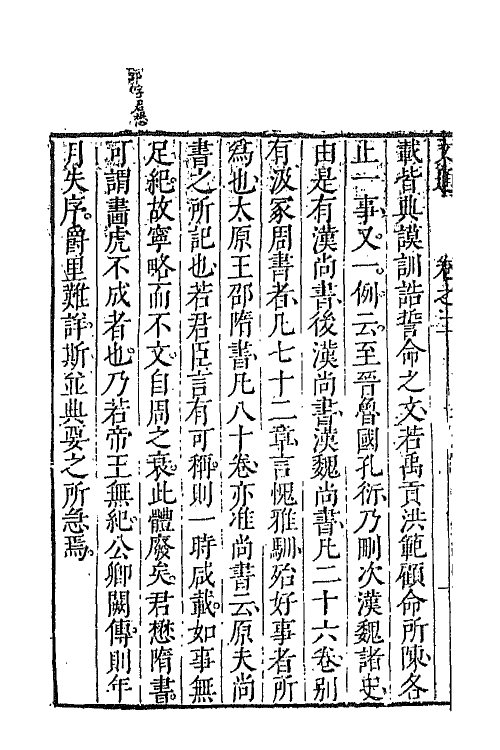 卷之二
載皆典謨訓誥誓命之文若禹貢洪範顧命所陳各
止一事又一例云至晉魯國孔衍乃刪次漢魏諸史
由是有漢尚書後漢尚書漢魏尚書凡二十六卷別
有汲冢周書者凡七十二章言愧雅馴殆好事者所
爲也太原王邵隋書凡八十卷亦准尚書云原夫尚
書之所記也若君臣言有可稱則一時咸載如事無
足紀故寧略而不文自周之衰此體廢矣君懋隋書
可謂畫虎不成者也乃若帝王無紀公卿闕傳則年
月失序爵里難詳斯並典要之所急焉
邵字君懋